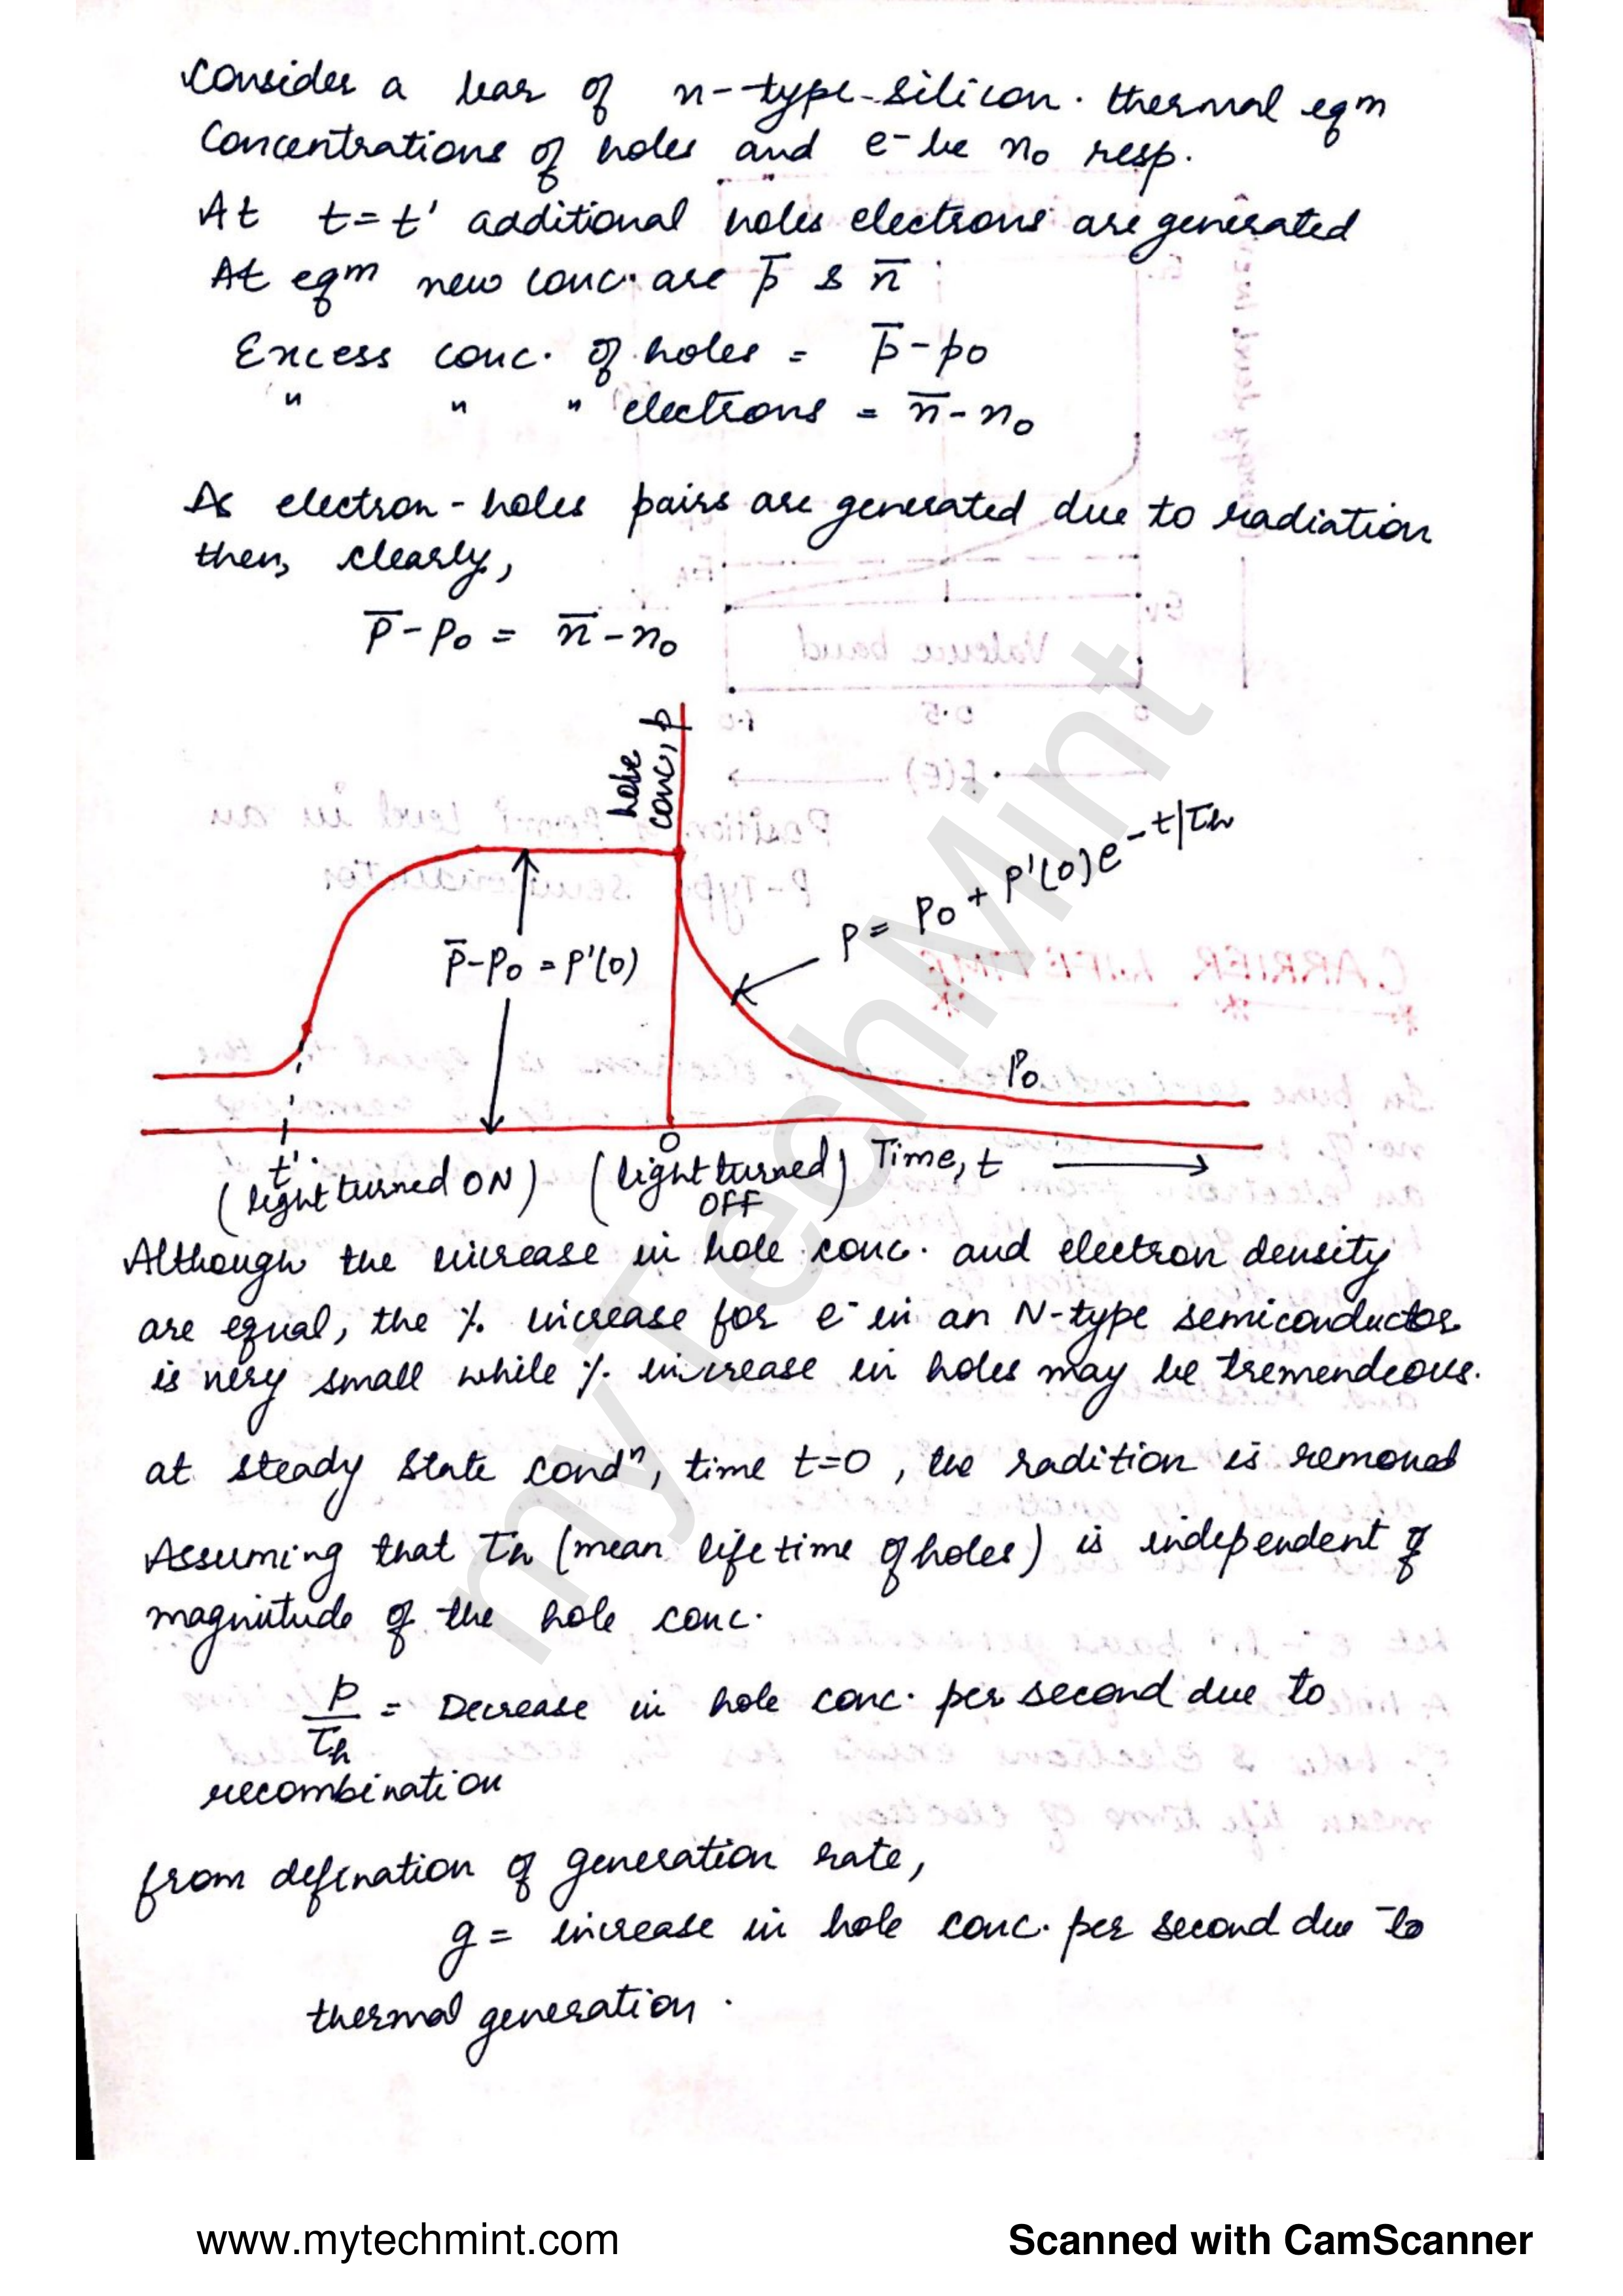 Consider a bar of n-type silicon. thermal eqm
Concentrations of holes and e- be n₀ resp.
At t=t' additional holes electrons are generated
At eqm new conc. are p̅ & n̅
Excess conc. of holes = p̅-p₀
" " " electrons = n̅-n₀
As electron-holes pairs are generated due to radiation
then, clearly,
p̅-p₀ = n̅-n₀
hole
conc, p
p = p₀ + p'(0)e^-t/τh
p̅-p₀ = p'(0)
p₀
t'
0
Time, t
(light turned ON)
(light turned)
OFF
Although the increase in hole conc. and electron density
are equal, the % increase for e- in an N-type semiconductor
is very small while % increase in holes may be tremendeous.
at steady state condⁿ, time t=0, the radition is removed
Assuming that τh (mean life time of holes) is independent of
magnitude of the hole conc.
p/τh = Decrease in hole conc. per second due to
recombination
from defination of generation rate,
g = increase in hole conc. per second due to
thermal generation.
myTechMint
www.mytechmint.com
Scanned with CamScanner